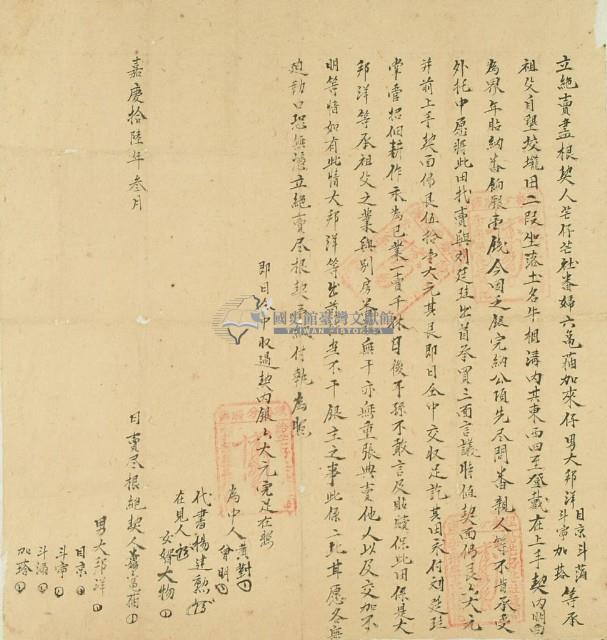 立絕賣盡根契人芒仔芒社番婦六萬蒲加來仔男大邦洋目京斗滿斗帝加塔等承
祖父自墾埔壠田二段坐落土名牛相溝內其東西四至登載在上手契內明白
為界年貼納番餉銀壹錢今因乏銀完納公項先尽問番親人等不肯承受
外托中愿將此田找賣與刘廷珪出首承買三面言議時值契面佛艮大元
并前上手契面佛艮伍拾壹大元其艮即日仝中交收足訖其田永付刘廷珪
掌管招佃耕作永為已業一賣千休日後子孫不敢言及貼贖保此田係是大
邦洋等承祖父之業與別房人無干亦無重張典賣他人以及交加不
明等情如有此情大邦洋等出首抵不干銀主之事此係二比甘愿各無
迫勒口恐無憑立絕賣尽根契付執為照
即日仝中收過契內銀大元完足在照
為中人 黃對
曾明
代書楊建勳
在見人
女婿大物
嘉慶拾陸年叁月 日賣尽根絕契人
男大邦洋
目京
斗帝
斗滿
加塔
國史館臺灣文獻館
TAIWAN HISTORICA